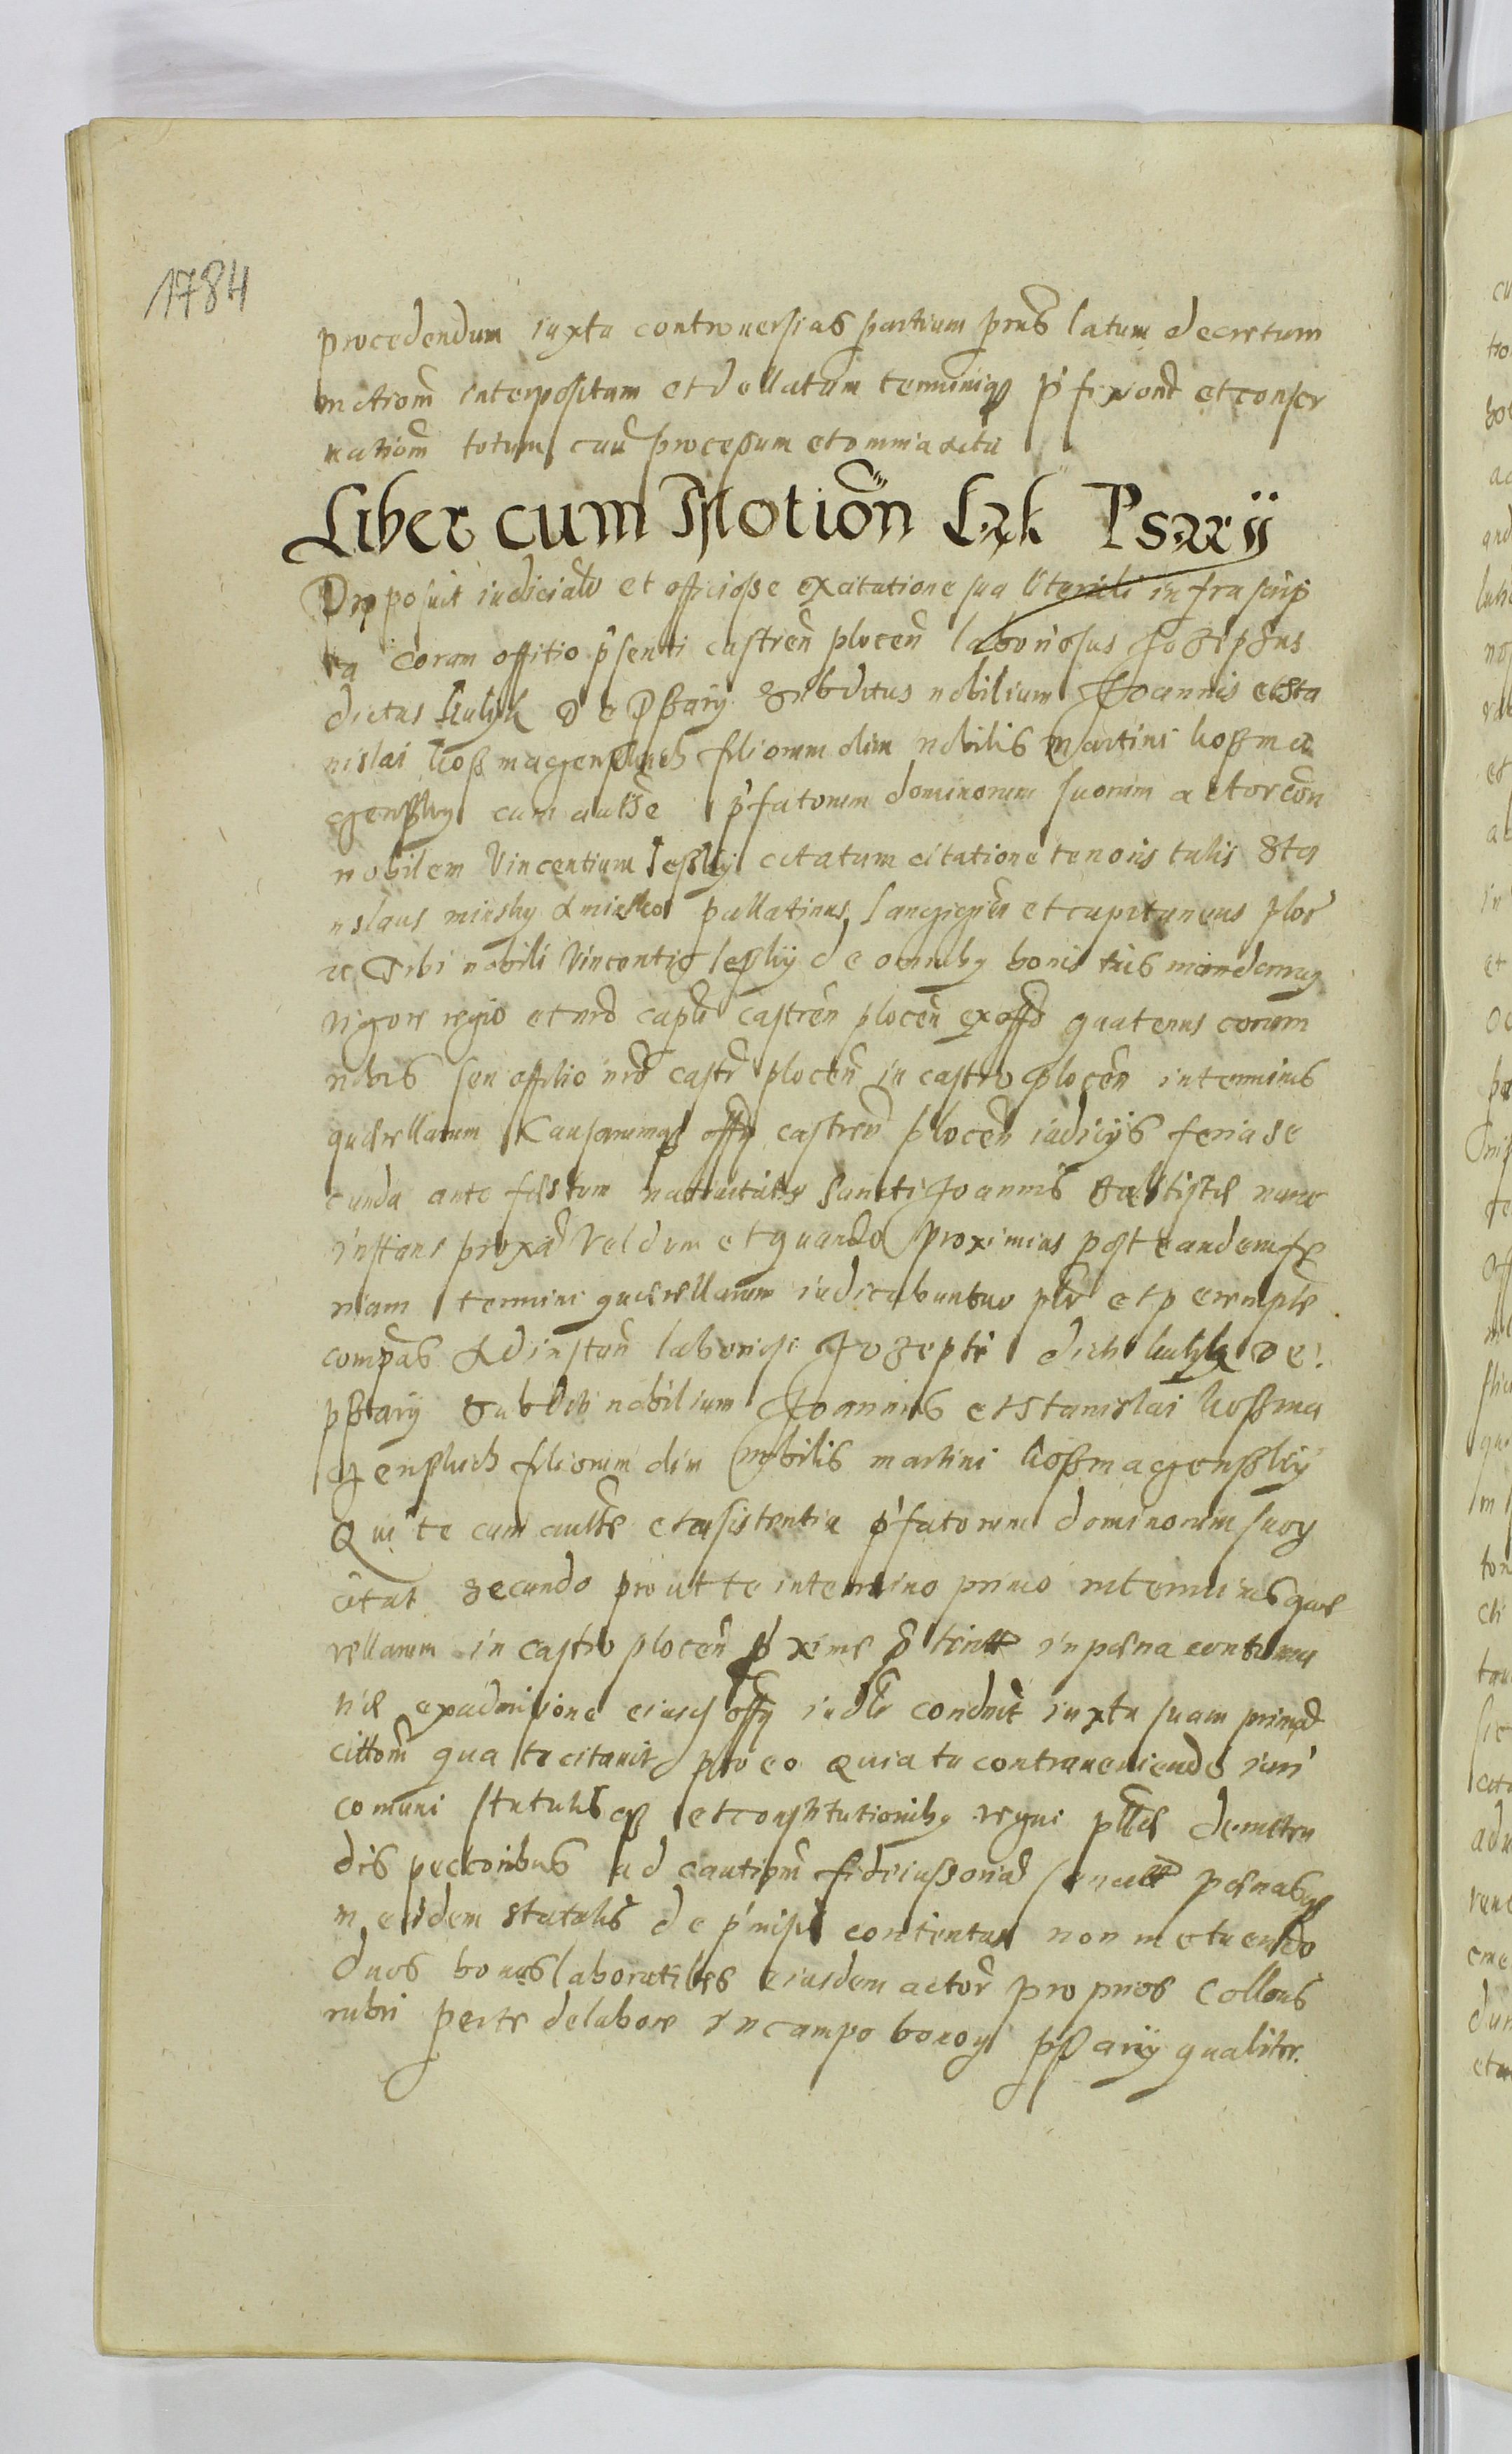 1784
procedendum iuxta controuersias partium prius latum decretum
motionem interpositam et dellatam terminiq prefixionem et conser
uationem totum cau processum et omnia acta
Liber cum Motion Lęk Psarÿ
Proposuit iudicialr et officiose ex citatione sua literali infrascrip
ta coram offitio p̃senti castren plocen laboriosus Jozephus
dictus Kulyk De Pßarÿ Subditus nobilium Joannis et Sta
nislai koßmaczewskich filiorum olim nobilis Martini koßma
czewsky cum autte p̃fatorum dominorum suorum actor con
nobilem Vincentium leskÿ citatum citatione tenoris talis Sta
nslaus minsky d minsko pallatinus lancicien et capitaneus ploc
ec Tibi nobili Vincentio leskÿ de omniby bonis tuis mandamus
vigore regio et nro captli castren plocen ex offo quatenus coram
nobis seu offitio nro castri plocen in castro plocen in terminis
querellarum Causarumq offy castren plocen iudicÿs feria se
cunda ante festum natiuitatis Sancti Joannis Baptistæ nunc
instans proxa Vel dum et quando proximius post eandem fe
riam termini querellarum iudicabuntur plr et peremptre
compas Ad instan laboriosi Jozephi dicti kulyk De
pßarÿ Subditi nobilium Joannis et Stanislai koßma
czenskich filiorum olim nobilis martini koßmaczenskÿ
Qui te cum autte et asistentia p̃fatorum dominorum suoy
citat secundo prout te in termino primo in terminis que
rellarum in castro plocen proxime in pæna contuma
tiæ ex admisione eiusd offy iudlr conduit iuxta suam prima
cittom qua te citauit pro eo quia tu contraueniendo iuri
comuni statutisq et constitutioniby regni de metien
dis peccoribus ad cautiom fideiussoria pænasq
in eisdem statutis de p̃misis contentas non metuendo
duos boues laboratiles eiusdem actor proprios Colloris
rubri perte delabore in campo bonoy pßarÿ qualiter